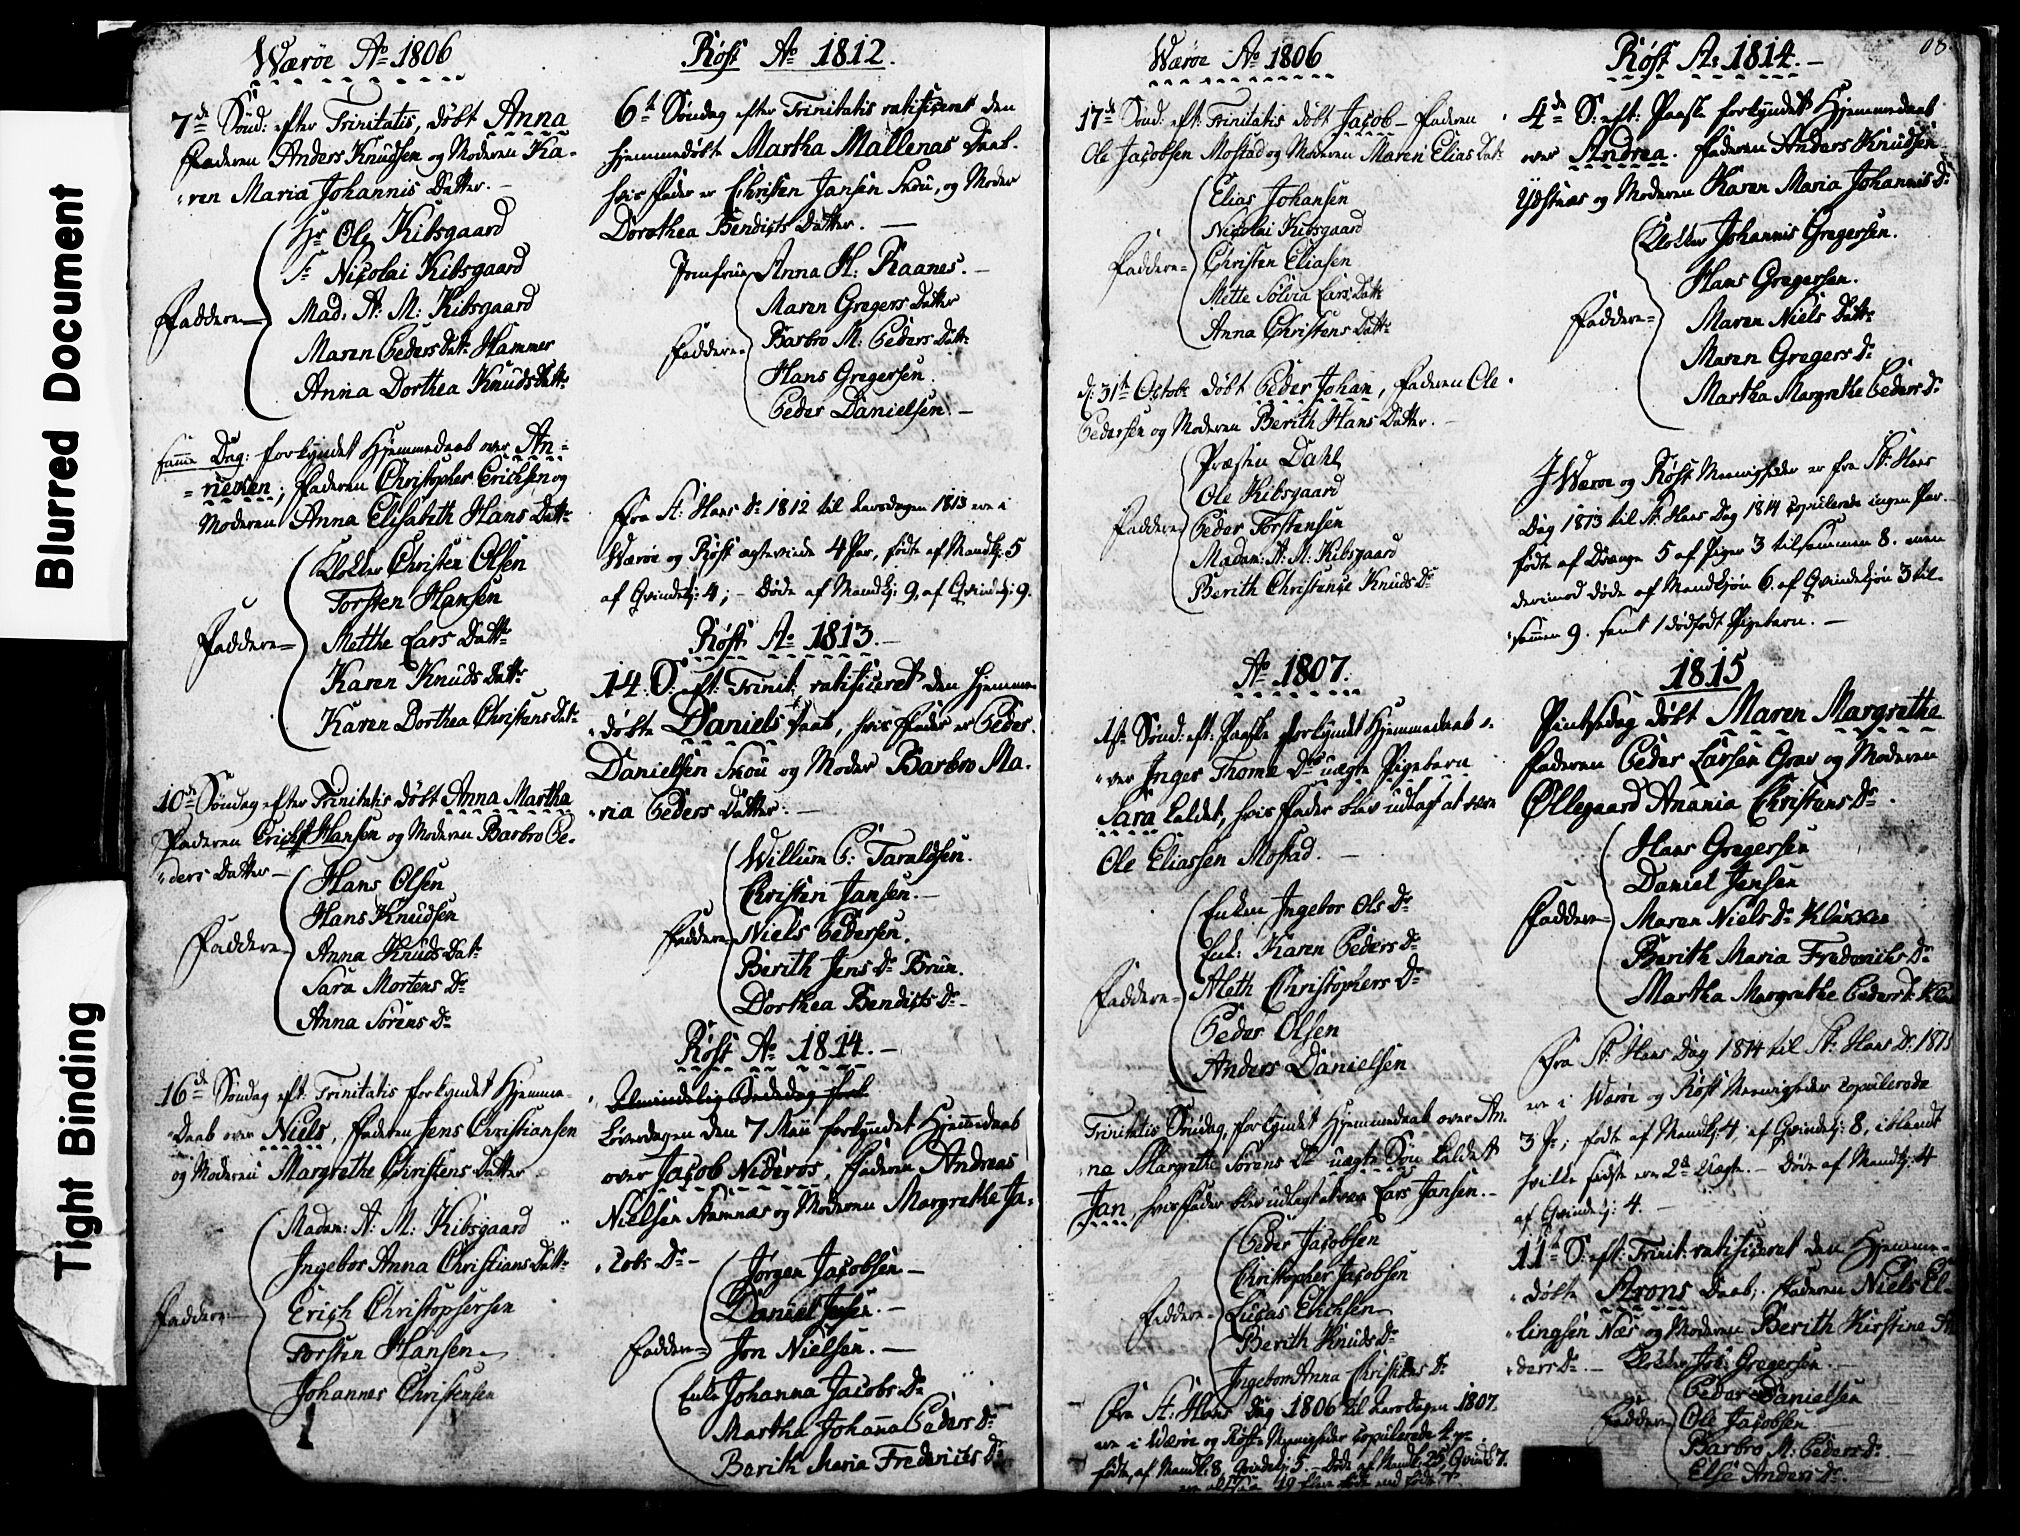 Blurred Document
Tight Binding
Wærøe Ao 1806
7de Sønd: efter Trinitatis, døbt Anna
Faderen Anders Knudsen og Moderen Ka-
ren Maria Johannis Datter. -
Hr Ole Kibsgaard
Sr Nicolai Kibsgaard
Mad. A: M: Kibsgaard
Faddere
Maren Peders Dat: Hammer
Anna Dorthea Knuds Datr
samme Dag: forkyndet Hjemmedaab over An-
Faderen Christopher Erichsen og
Moderen Anna Elisabeth Hans Datr
Klokker Christen Olsen
Torsten Hansen
Faddere
Metthe Lars Datr
Karen Knuds Datr
Karen Dorthea Christens Dat:
10de Søndag efter Trinitatis døbt Anna Martha
Faderen Erich Hansen og Moderen Barbro Pe-
ders Datter -
Hans Olsen
Hans Knudsen
Faddere
Anna Knuds Dat:
Sara Mortens Dr
Anna Sørens Dr
16de Søndag eft: Trinitatis forkyndet Hjemme-
Daab over Niels, Faderen Jens Christiansen
og Moderen Margrethe Christens Datter
Madam: A: M: Kibsgaard
Ingebor Anna Christians Datr
Faddere
Erich Christophersen
Torsten Hansen
Johannes Christensen
Røst Ao 1812.
6te Søndag efter Trinitatis ratificeret den
hjemmedøbte Martha Mallenas Daab.
hvis Fader er Christen Jansen Skou, og Moder
Dorothea Bendicts Datter. -
Jomfrue Anna H: Raanes. -
Maren Gregers Datter
Faddere
Barbro M: Peders Datr
Hans Gregersen
Peder Danielsen. -
Fra St: Hans Dr 1812 til Løverdagen 1813 ere i
Wærøe og Røst ægteviede 4 Par, fødte af Mandkj: 5
af Qvindekj: 4; - Døde af Mandkj: 9, af Qvindekj: 9.
Røst Ao 1813. -
14. S: eft: Trinit: ratificeret den hjemme-
døbte Daniels Daab, hvis Fader er Peder
Danielsen Skou og Moder Barbro Ma-
ria Peders Datter. -
Willum P: Taraldsen.
Christen Jansen. -
Faddere
Niels Pedersen.
Berith Jens Dr Brun.
Dorthea Bendicts Dr -
Røst Ao 1814. -
Almindelig Bededag fork
Løverdagen den 7 Maii forkyndet Hjemmedaab
over Jacob Nideros, Faderen Andreas
Nielsen og Moderen Margrethe Ja-
cobs Dr -
Jørgen Jacobsen -
Daniel Jensen. -
Faddere
Jon Nielsen. -
Enke Johanna Jacobs Dr
Martha Johanna Peders Dr
Berith Maria Frederichs Dr
Wærøe Ao 1806
17de Sønd: eft: Trinitatis døbt Jacob - Faderen
Ole Jacobsen Mostad og Moderen Maren Elias Datr
Elias Johansen
Nicolai Kibsgaard
Faddere
Christen Eliasen
Mette Sølvia Lars Datr
Anna Christens Datr
d: 31te Octobr døbt Peder Johan, Faderen Ole
Pedersen og Moderen Berith Hans Datter. -
Præsten Dahl
Ole Kibsgaard
Faddere
Peder Torstensen
Madam: A: M: Kibsgaard
Berith Christense Knuds Dr
Ao 1807.
1ste Sønd: eft: Paaske forkyndt Hjemmedaab o-
ver Inger Thome Drs uægte Pigebarn
Sara kaldet, hvis Fader blev udlagt at være
Ole Eliassen Mostad. -
Enken Ingebor Ols Dr
Enk: Karen Peders Dr
Faddere
Aleth Christophers Dr
Peder Olsen
Anders Danielsen
Trinitatis Søndag, forkyndet Hjemmedaab over An-
ne Margrethe Sørens Dr uægte Søn kaldet
Jan, hvis Fader blev udlagt at være Lars Jansen. -
Peder Jacobsen
Christopher Jacobsen
Faddere
Lucas Erichsen
Berith Knuds Dr
Ingebor Anna Christens Dr
Fra St: Hans Dag 1806 til Løverdagen 1807.
ere i Wærøe og Røst Menigheder copulerede
fødte, af Mandk: 8 Qvindekj: 5 - Døde af Mandk: 25, Qvindk 7.
Røst Ao 1814. -
08
4de S: eft: Paaske forkyndet Hjemmedaab
over Andrea. Faderen Anders Knudsen
Ydstnæs og Moderen Karen Maria Johannis Dr
Klokker Johannis Gregersen.
Hans Gregersen.
Faddere
Maren Niels Datr
Maren Gregers Dr
Martha Margrethe Peders Dr
I Wærøe og Røst Menigheder er fra St: Hans
Dag 1813 til St: Hans Dag 1814 copulerede ingen Par.
fødte af Drenge 5 af Piger 3 tilsammen 8. men
derimod døde af Mandkjøn 6. af Qvindekjøn 3 til-
sammen 9. samt 1 dødfødt Pigebarn. -
1815
Pintsedag døbt Maren Margrethe
Faderen Peder Larsen Grav og Moderen
Øllegaard Anania Christens Dr
Hans Gregersen
Daniel Jensen
Faddere
Maren Niels Dr Klakken
Berith Maria Frederichs Dr
Martha Margrethe Peders Dr
Fra St: Hans Dag 1814 til St: Hans Dr 1815
ere i Wærøe og Røst Menigheder copulerede
3 Pr; fødte af Mandkj: 4, af Qvindekj: 8, iblandt
hvilke sidste ere 2de Uægte. - Døde af Mandkj: 4
af Qvindekj: 4. -
11te S: eft: Trinit: ratificeret den Hjemme-
døbte Arons Daab, Faderen Niels El-
lingsen Næs og Moderen Berith Kirstine An
ders Dr. - Klokker Joh: Gregersen. -
Peder Danielsen
Faddere
Ole Jacobsen
Barbro M: Peders Dr
Else Anders Dr